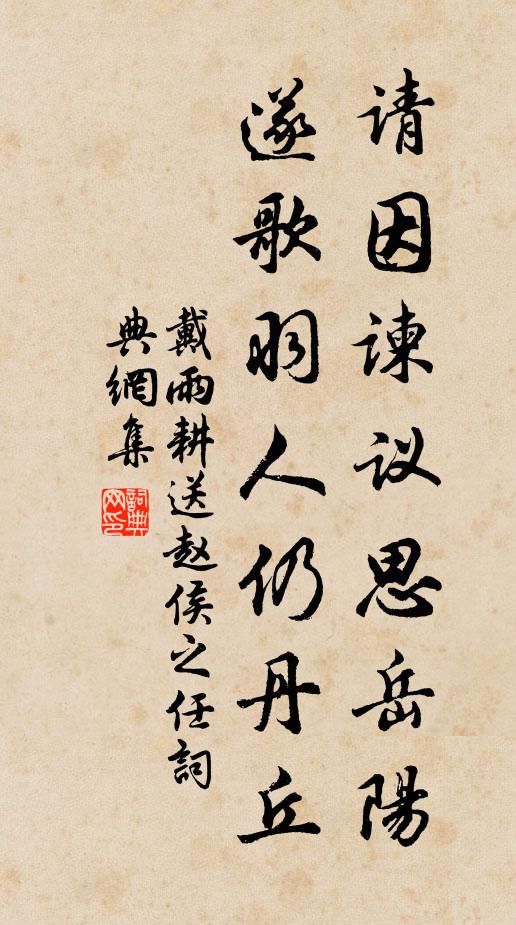 请因谏议思岳陽
遂歌羽人仍丹丘
戴雨耕送赵侯之任詞
典網集
詞典网印